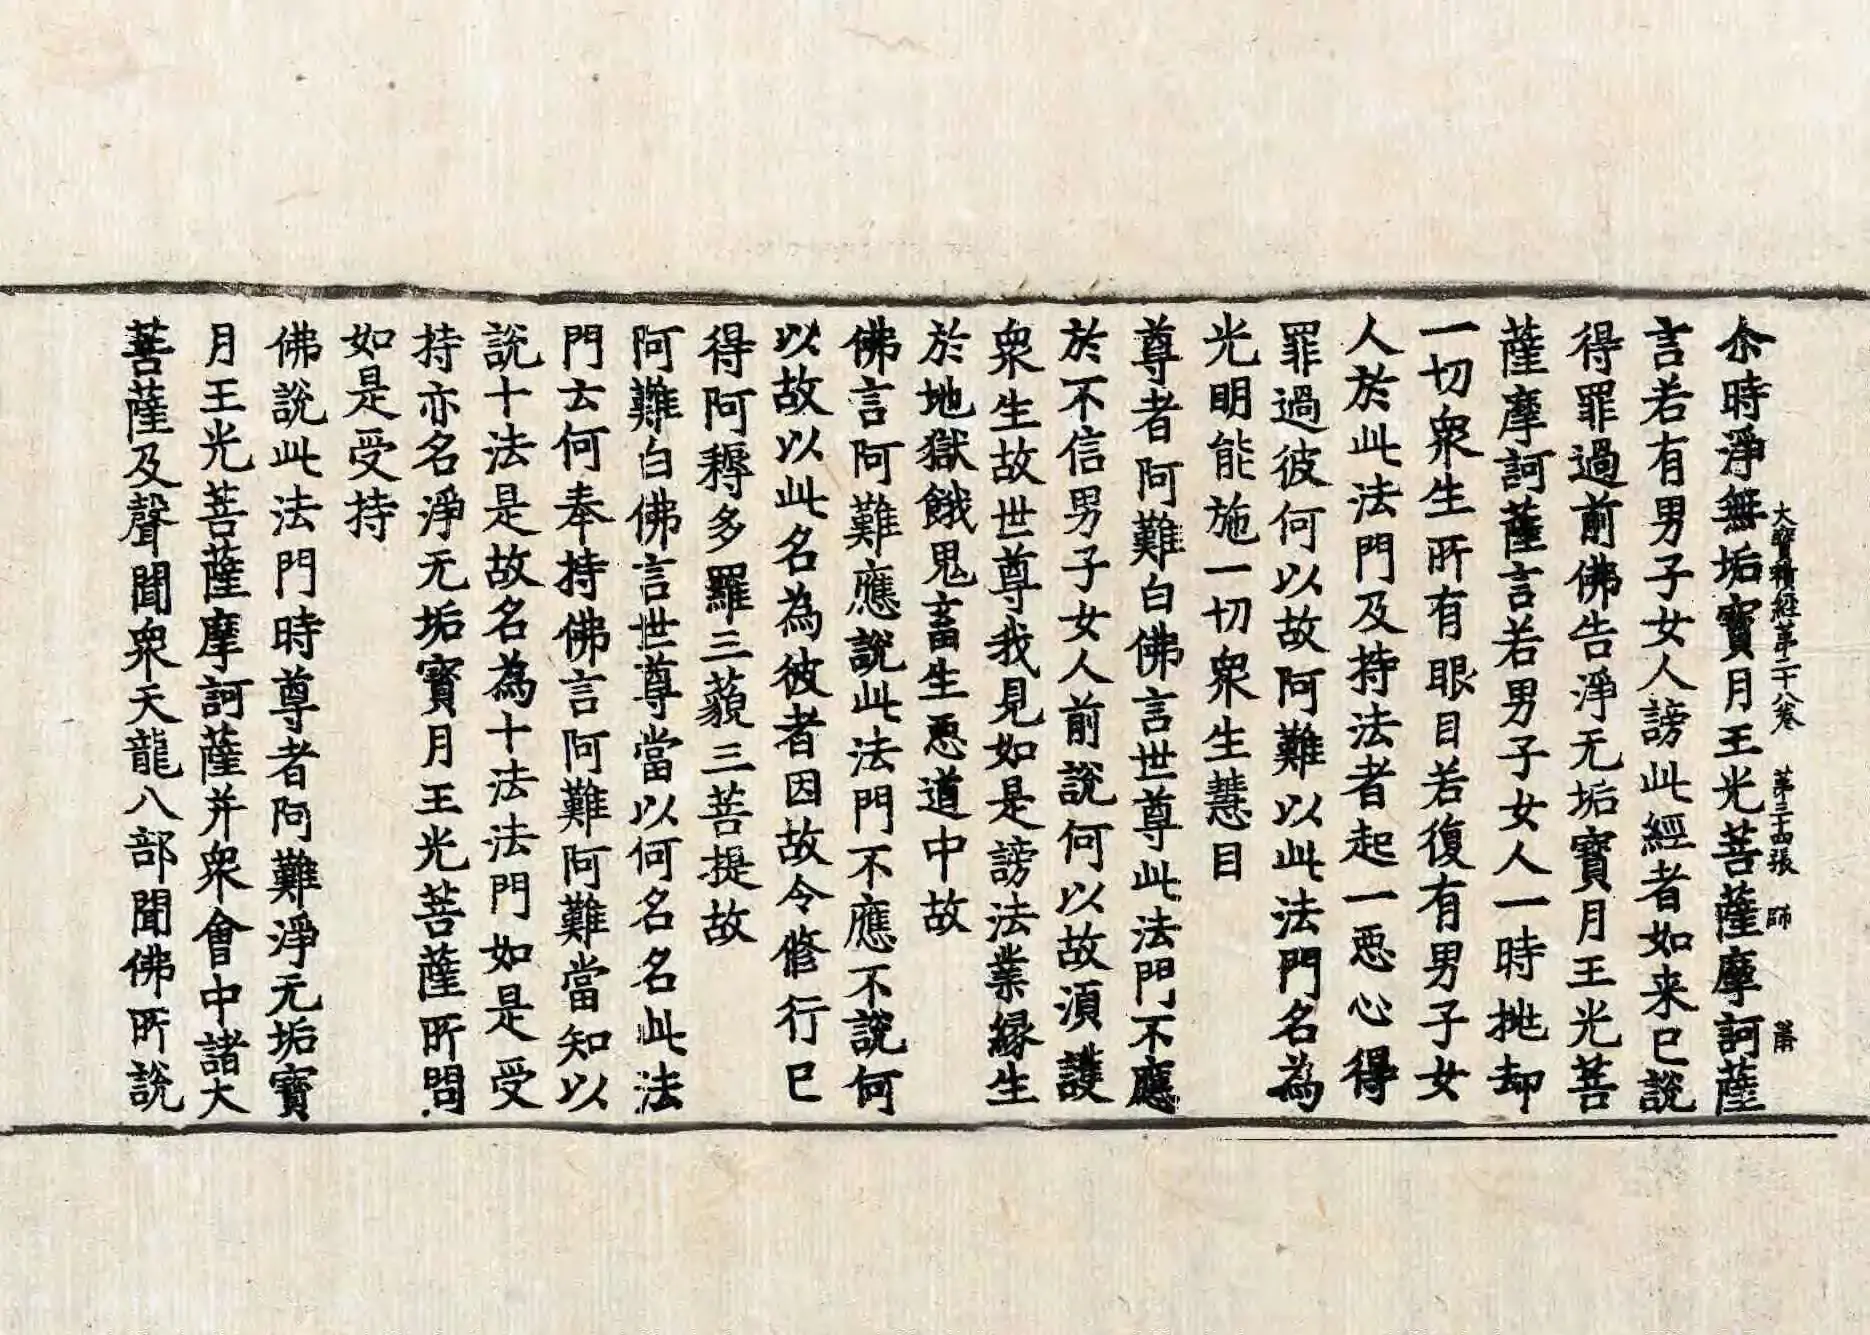 大寶積經第二十八卷 第三十四張 師
尒時淨無垢寶月王光菩薩摩訶薩
言若有男子女人謗此經者如来已說
得罪過前佛告淨无垢寶月王光菩
薩摩訶薩言若男子女人一時挑却
一切衆生所有眼目若復有男子女
人於此法門及持法者起一惡心得
罪過彼何以故阿難以此法門名為
光明能施一切衆生慧目
尊者阿難白佛言世尊此法門不應
於不信男子女人前說何以故湏護
衆生故世尊我見如是謗法業緣生
於地獄餓鬼畜生惡道中故
佛言阿難應說此法門不應不說何
以故以此名為彼者因故令修行已
得阿耨多羅三藐三菩提故
阿難白佛言世尊當以何名名此法
門云何奉持佛言阿難阿難當知以
說十法是故名為十法法門如是受
持亦名淨无垢寶月王光菩薩所問
如是受持
佛說此法門時尊者阿難淨无垢寶
月王光菩薩摩訶薩并衆會中諸大
菩薩及聲聞衆天龍八部聞佛所說